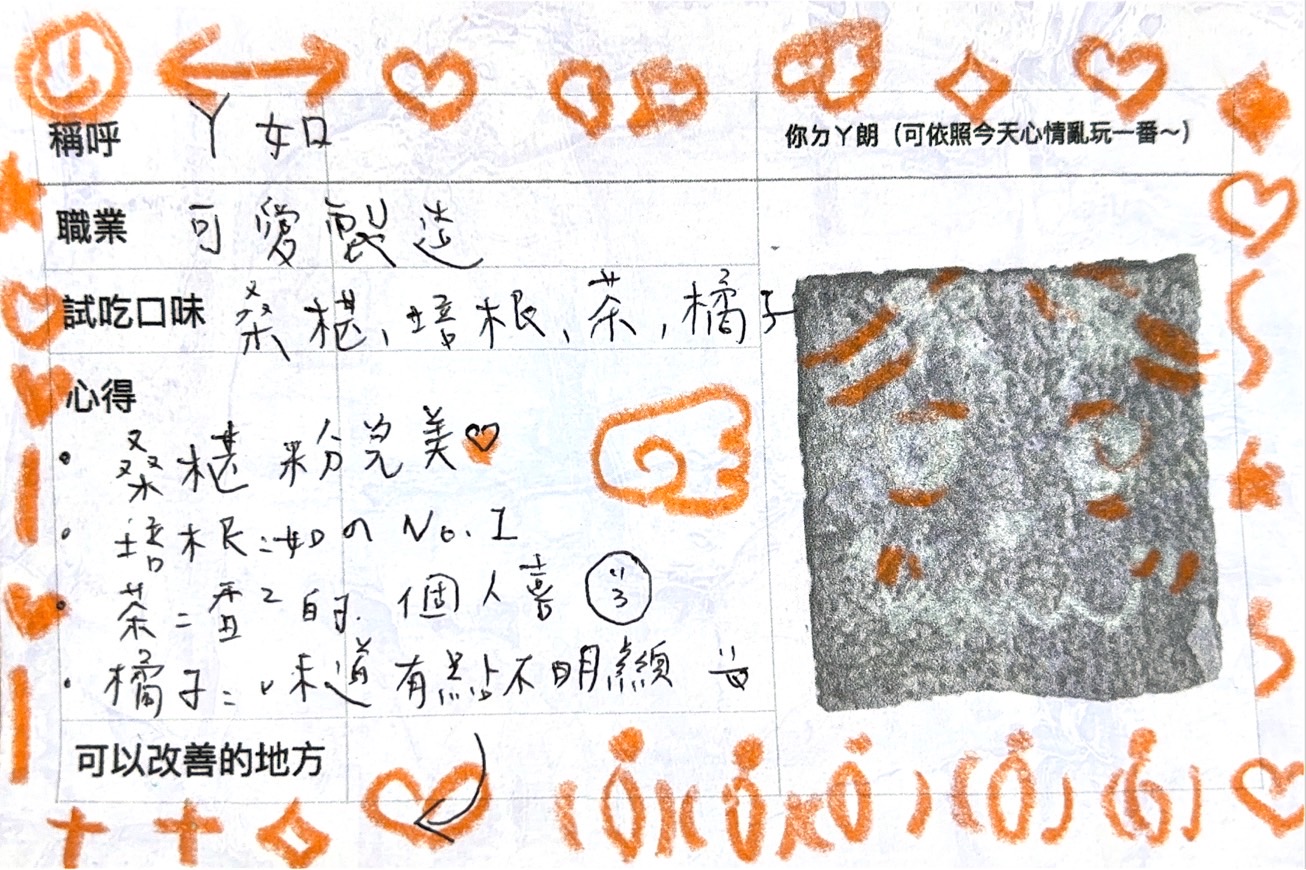 稱呼 ㄚ如
你ㄉㄚ朗（可依照今天心情亂玩一番～）
職業 可愛製造
試吃口味 桑椹、培根、茶，橘子
心得
• 桑椹粉完美♡
• 培根：如の No.1
• 茶：香²的. 個人喜
• 橘子：味道有點不明顯
可以改善的地方